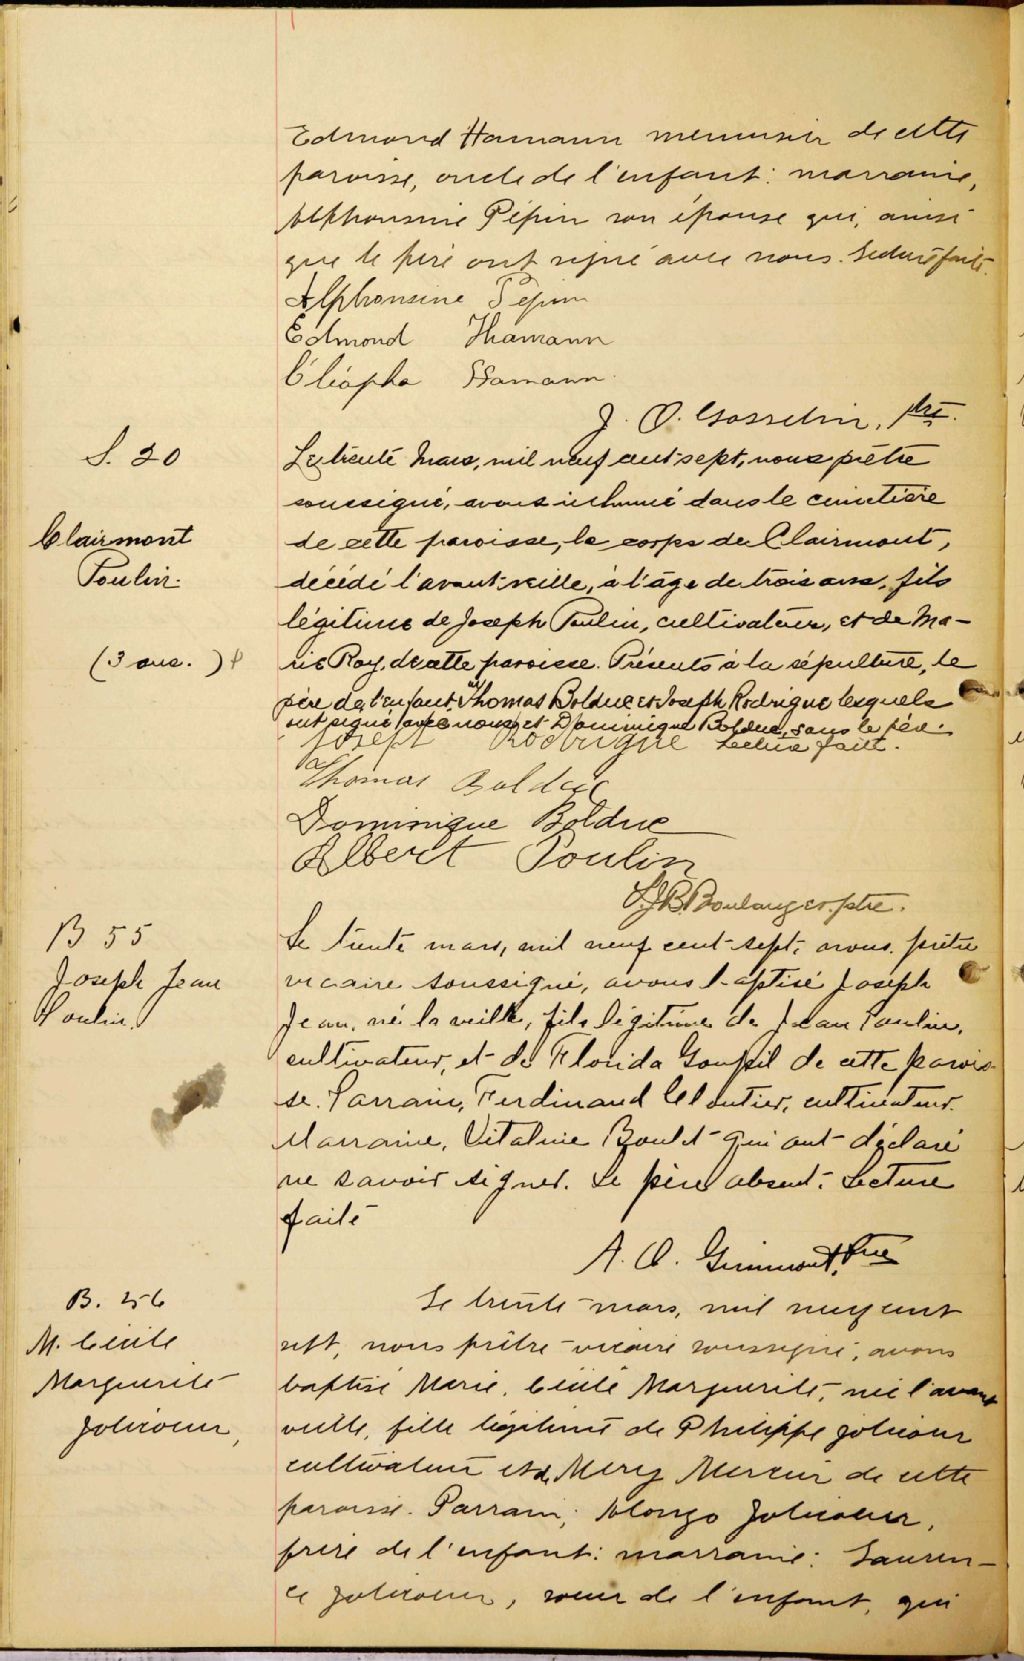 Edmond Hamann menuisier de cette
paroisse, oncle de l'enfant: marraine,
Alphonsine Pépin son épouse qui, ainsi
que le père ont signé avec nous. Lecture faite.
Alphonsine Pepin
Edmond Hamann
Cléopha Hamann
J. O. Gosselin, ptre.
S. 20
Clairmont
Poulin.
(3 ans.)
Le trente Mars, mil neuf cent sept, nous prêtre
soussigné, avons inhumé dans le cimetière
de cette paroisse, le corps de Clairmont,
décédé l'avant-veille, à l'âge de trois ans, fils
légitime de Joseph Poulin, cultivateur, et de Ma-
rie Roy, de cette paroisse. Présents à la sépulture, le
père de l'enfant, Thomas Bolduc et Joseph Rodrigue lesquels
ont signé avec nous et Dominique Bolduc, sans le père.
Joseph Rodrigue Lecture faite.
Thomas Bolduc
Dominique Bolduc
Albert Poulin
L.J.B. Boulanger, ptre.
B 55
Joseph Jean
Poulin.
Le trente mars, mil neuf cent-sept, nous prêtre
vicaire soussigné, avons baptisé Joseph
Jean, né la veille, fils légitime de Jean Poulin,
cultivateur, et de Florida Goupil de cette parois-
se. Parrain, Ferdinand Cloutier, cultivateur.
Marraine, Vitaline Boulet qui ont déclaré
ne savoir signer. Le père absent. Lecture
faite
A. O. Guimont, ptre
B. 56
M. Cécile
Marguerite
Jolicoeur,
Le trente mars, mil neuf cent
sept, nous prêtre vicaire soussigné, avons
baptisé Marie, Cécile Marguerite, née l'avant
veille, fille légitime de Philippe Jolicoeur
cultivateur et de Mery Mercier de cette
paroisse. Parrain, Alonzo Jolicoeur,
frère de l'enfant: marraine: Lauren-
ce Jolicoeur, soeur de l'enfant, qui